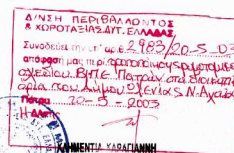 Δ/ΝΣΗ ΠΕΡΙΒΑΛΛΟΝΤΟΣ
& ΧΩΡΟΤΑΞΙΑΣ ΔΥΤ. ΕΛΛΑΔΑΣ
Συνοδεύει την υπ' αρ. 2983/20-5-03
απόφαση μας περί
σχεδίου ΒΙΠΕ Πατρών στα διοικητικά
όρια του Δήμου Ωλενίας Ν. Αχαΐας
Πάτρα 20-5-2003
ΚΛΗΜΕΝΤΙΑ ΚΑΡΑΓΙΑΝΝΗ